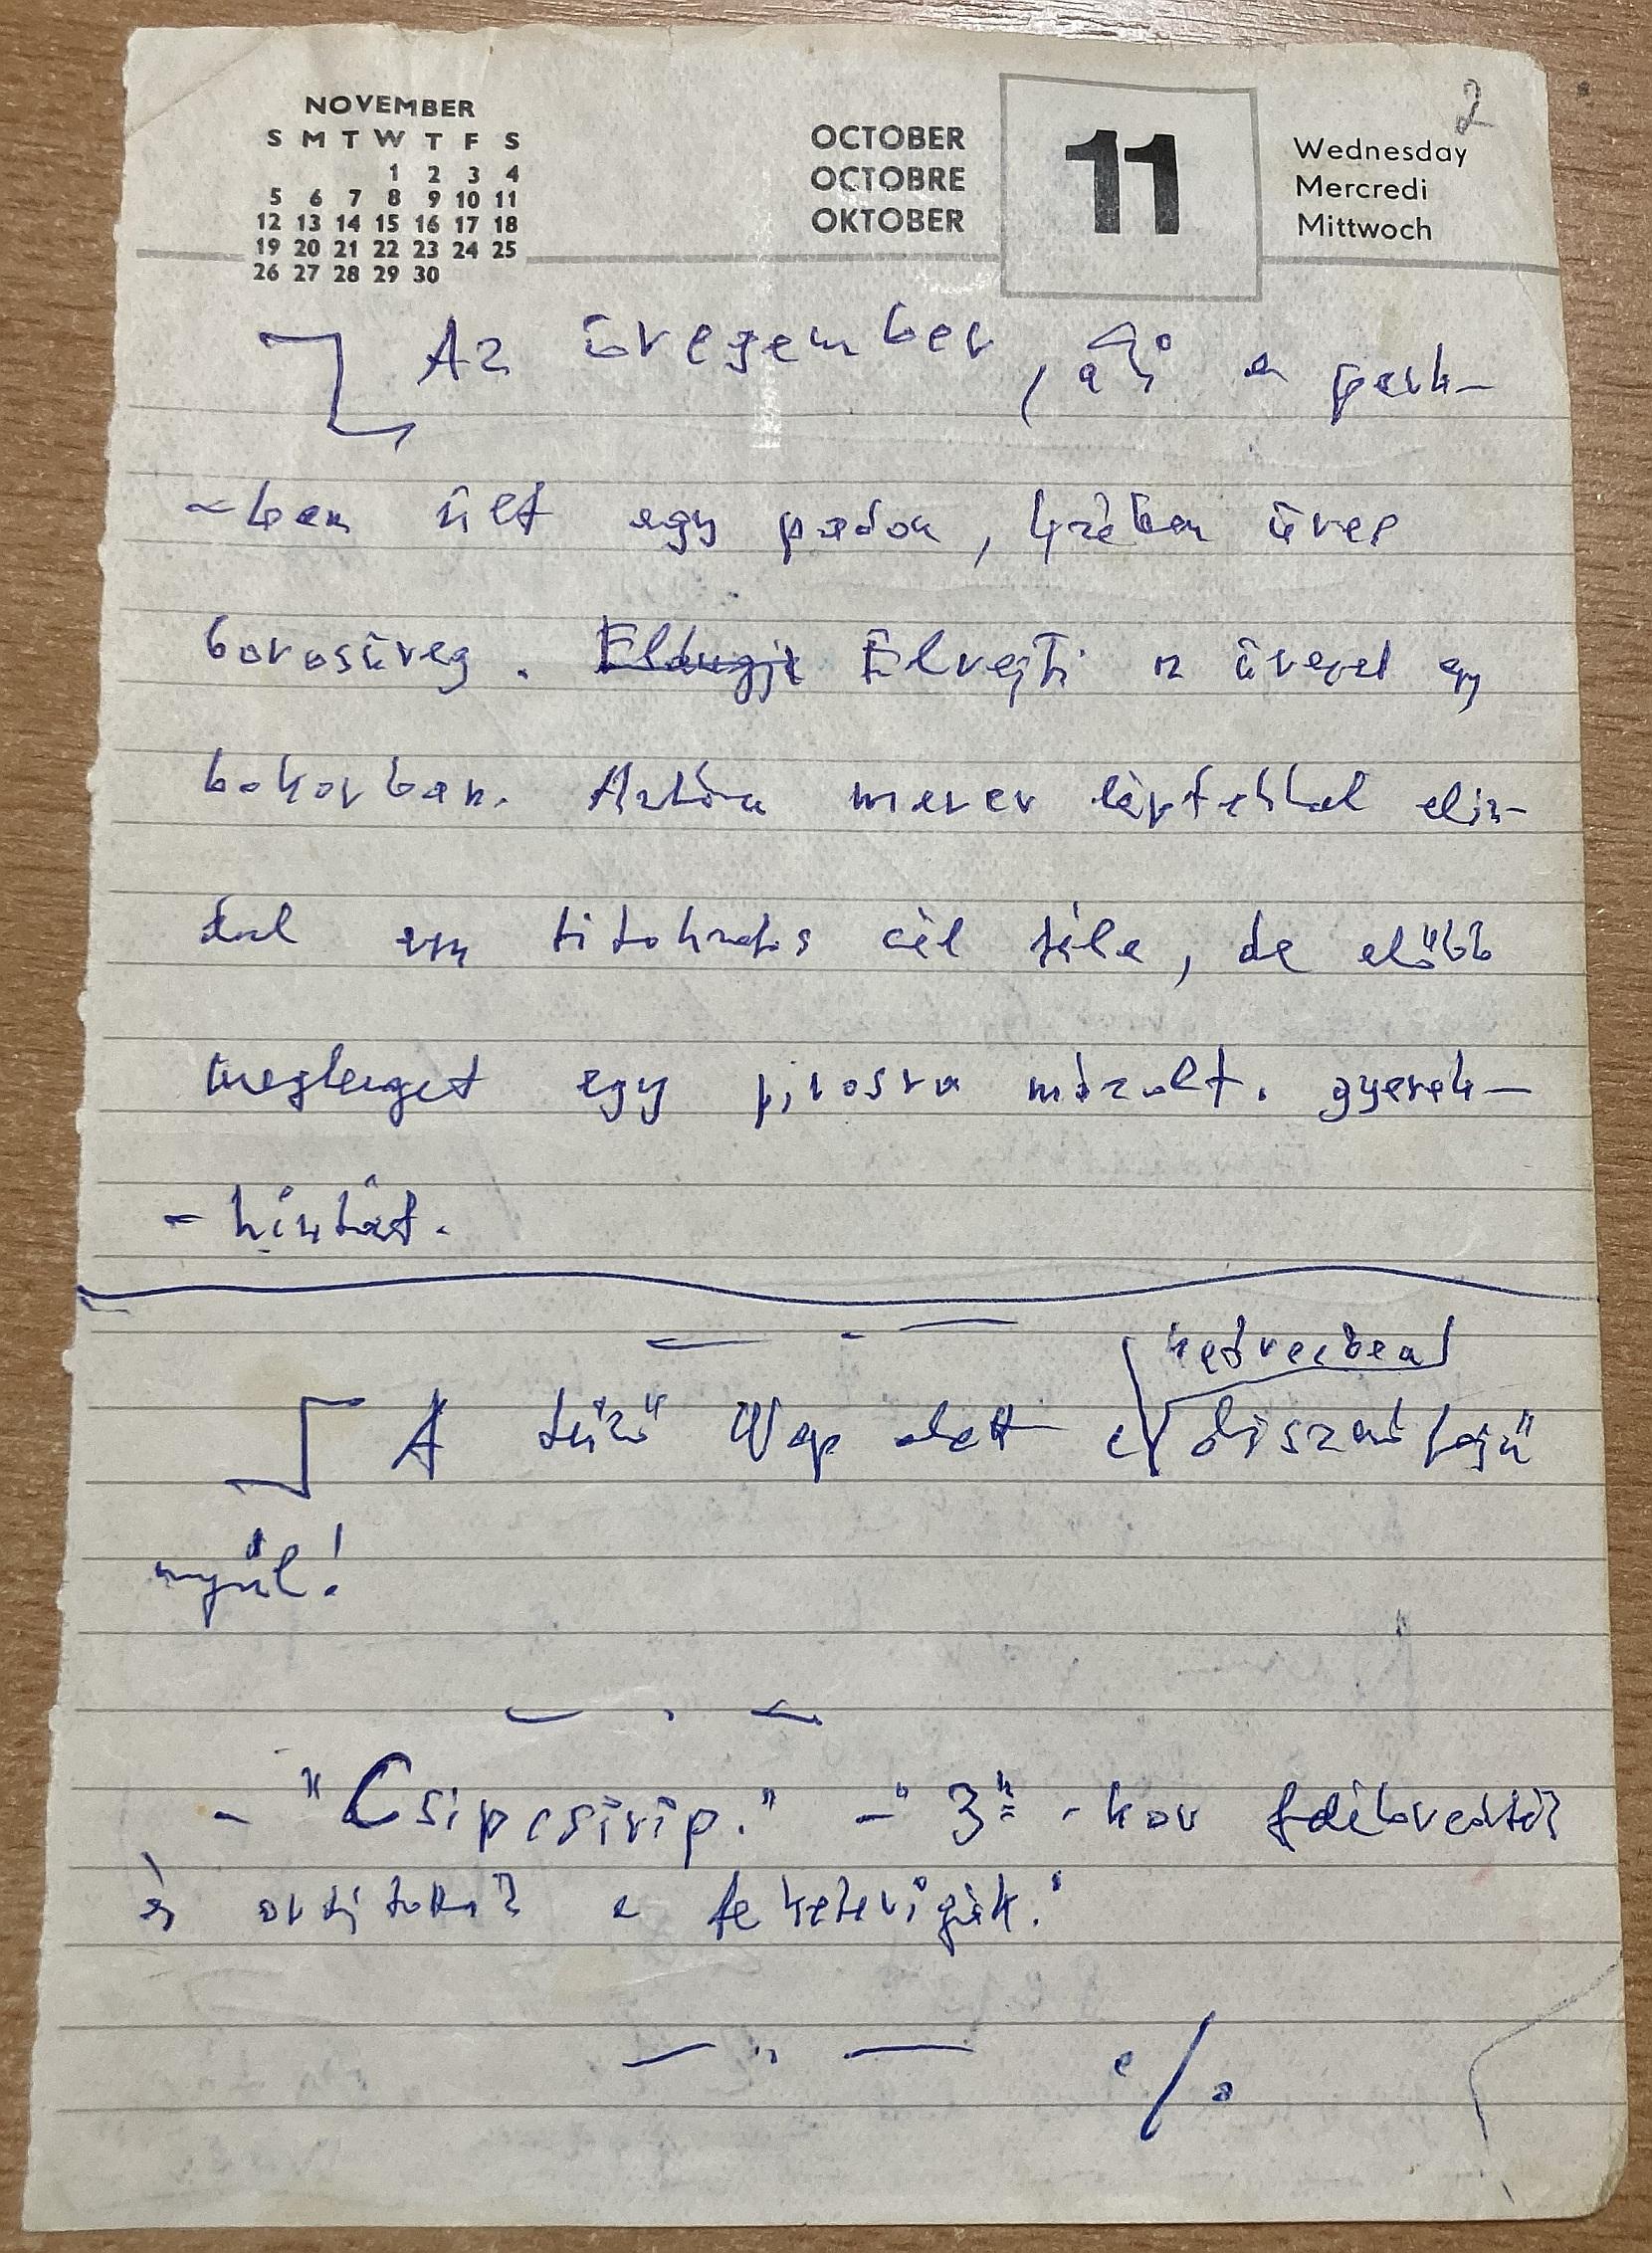 2
NOVEMBER
S M T W T F S
1 2 3 4
5 6 7 8 9 10 11
12 13 14 15 16 17 18
19 20 21 22 23 24 25
26 27 28 29 30
OCTOBER
OCTOBRE
OKTOBER
11
Wednesday
Mercredi
Mittwoch
Az üvegember, aki a park-
-ban ült egy padon, kezében üres
borosüveg. Eldugja Elrejti az üveget egy
bokorban. Aztán merev léptekkel elin-
dul egy titokzatos cél felé, de előbb
meglenget egy pirosra mázolt. gyerek-
-hintát.
A tűző Nap alatt
disznófejű
nyúl!
- "Csipcsirip." - 3 -kor
és a feketerigók."